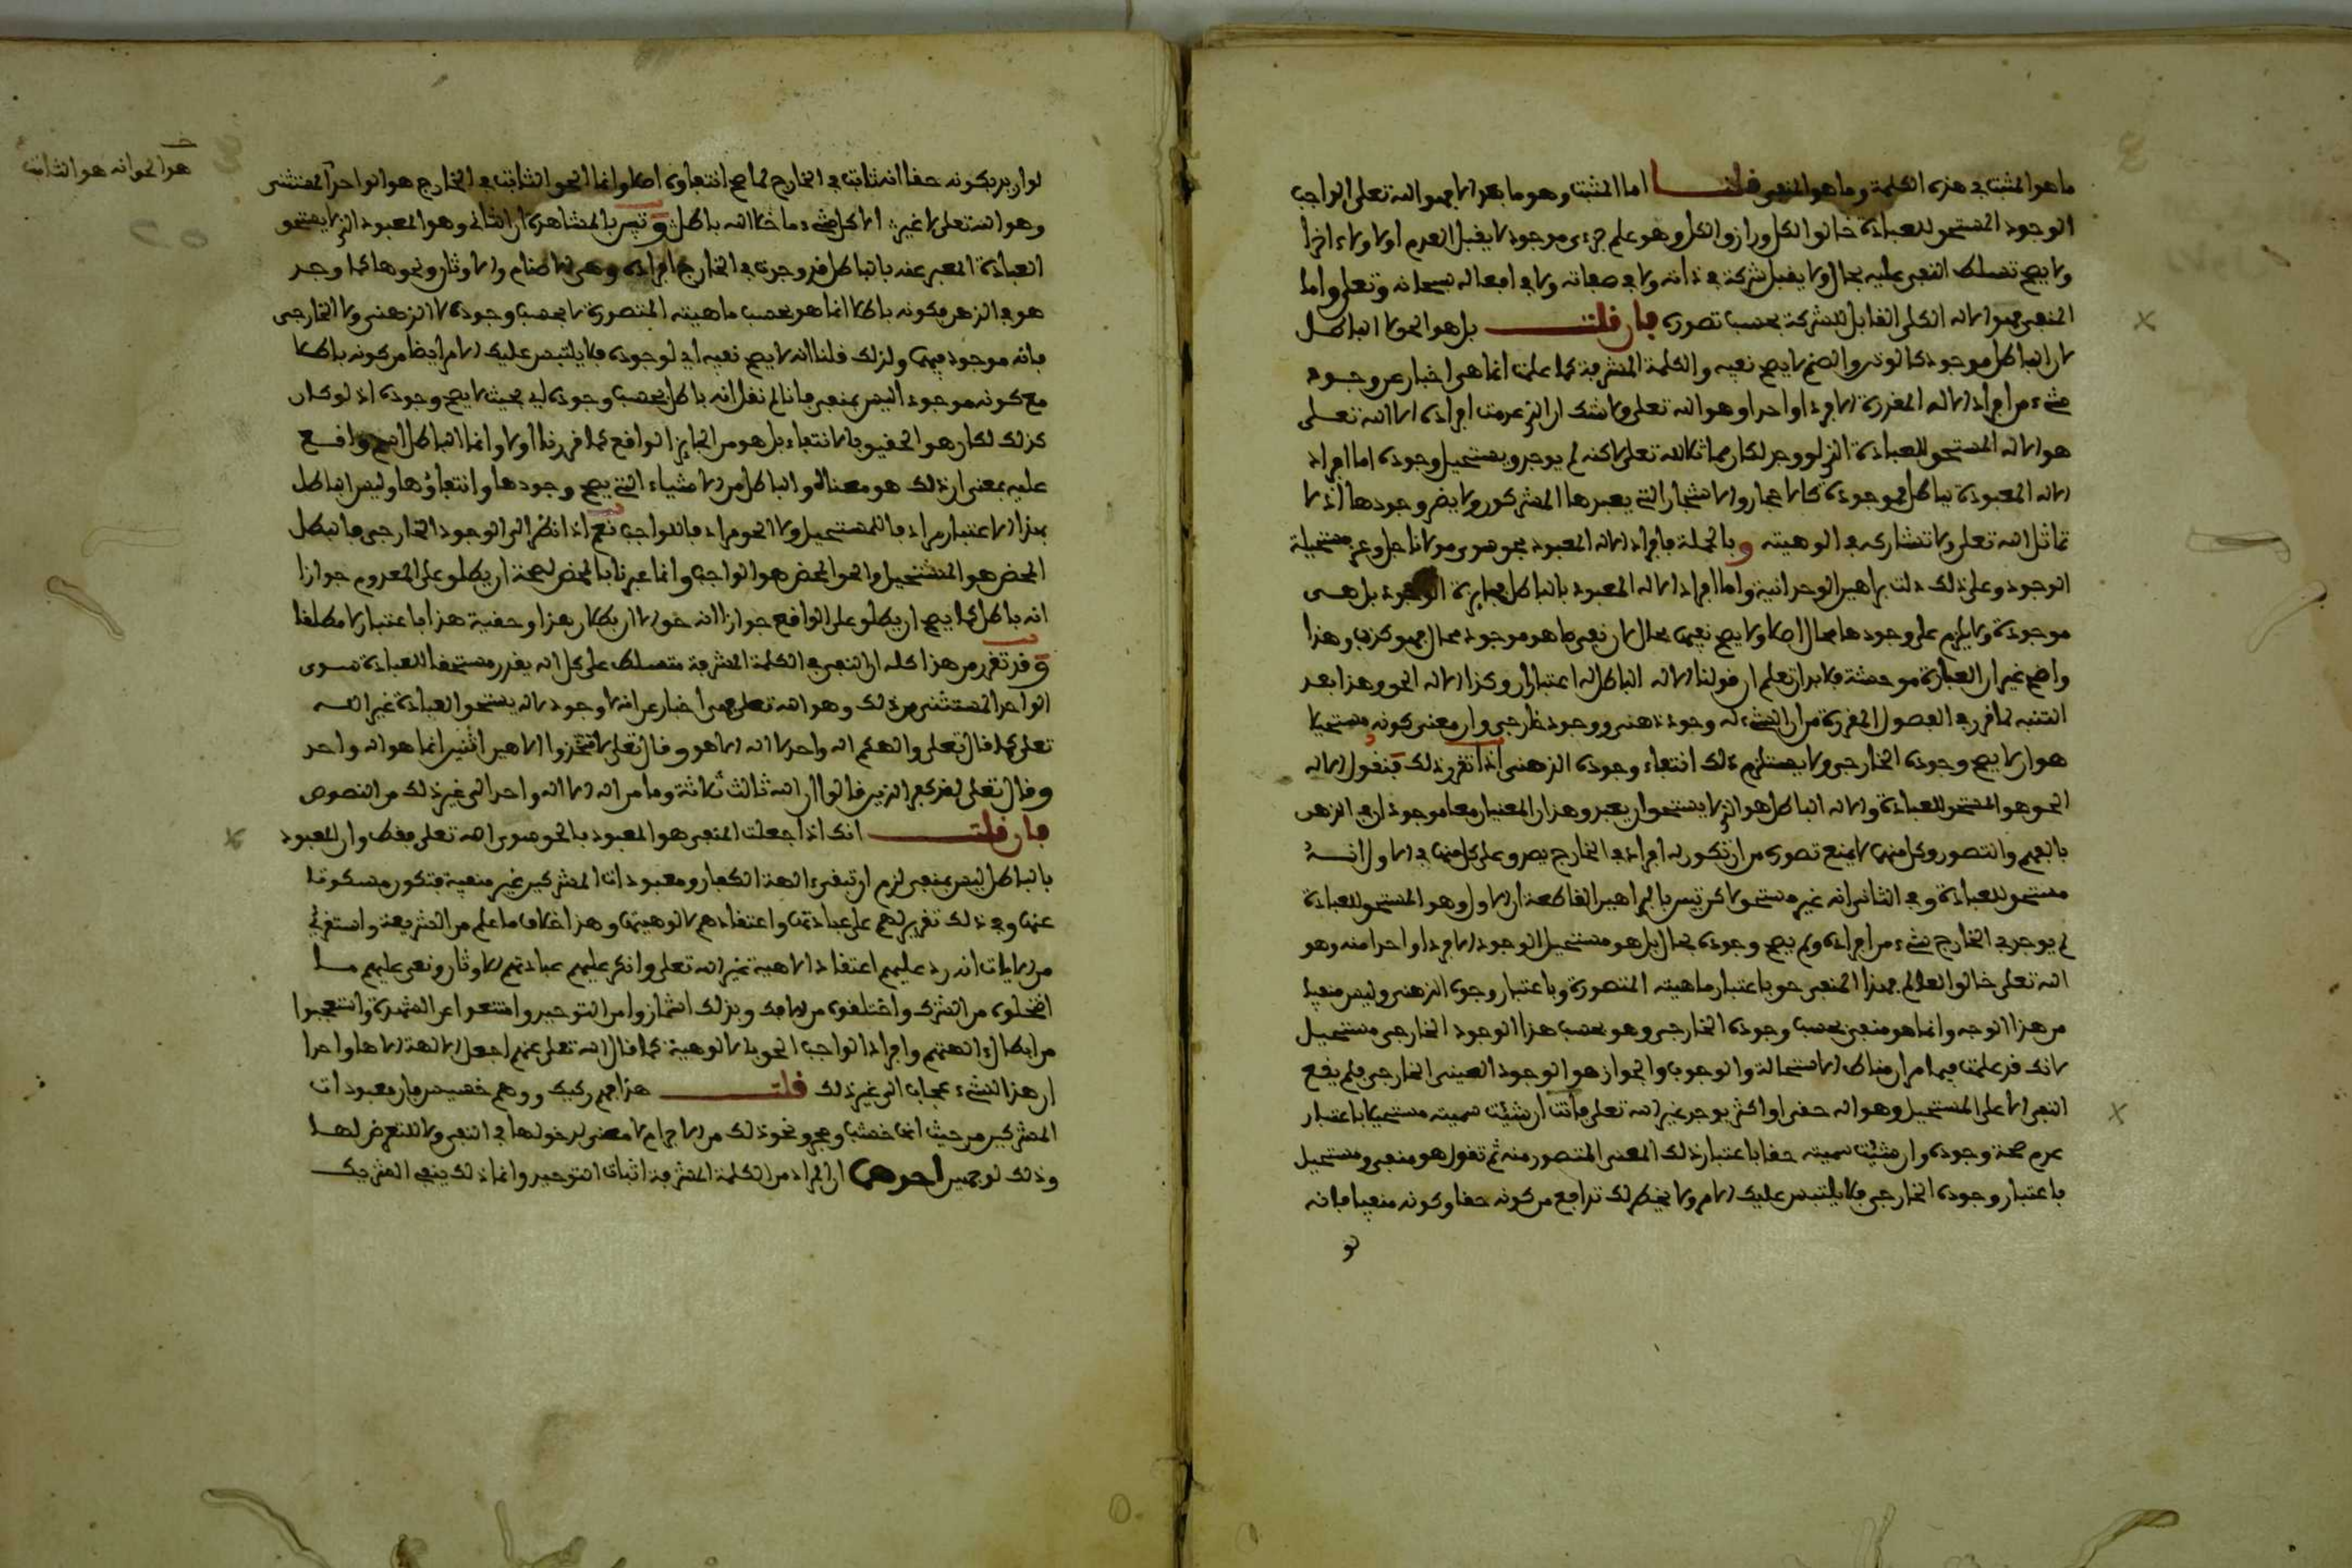 ما هو المثبت في هذه الكلمة وما هو المنفي قلنا اما المثبت وهو ما بعد الا فهو الله تعلى الواجب
الوجود المستحق للعبادة خالق الكل ورازق الكل وهو علم جزءى موجود لا يقبل العدم اولا ولا ءاخرا
ولا يصح تسلط النفي عليه بحال ولا يقبل شركة في ذاته ولا في صفاته ولا في افعاله سبحانه وتعلى واما
المنفي فهو الاله الكلي القابل للشركة بحسب تصوره فان قلت بل هو الحق لا الباطل
لان الباطل موجود كالوثن والصنم لا يصح نفيه والكلمة المشرفة كما علمت انما هي اخبار عن وجود
شيء من افراد الاله المقررة الا فردا واحدا وهو الله تعلى ولا شك ان الذي عدمت افراده الا الله تعلى
هو الاله المستحق للعبادة الذي لو وجد لكان مماثلا لله تعلى لاكنه لم يوجد ويستحيل وجوده اما افراد
الاله المعبودة بباطل فموجودة كالاحجار والاشجار التي يعبدها المشركون ولا يضر وجودها اذ لا
تماثل الله تعلى ولا تشاركه في الوهيته وبالجملة فافراد الاله المعبود بحق سوى مولانا جل وعز مستحيلة
الوجود وعلى ذلك دلت براهين الوحدانية واما افراد الاله المعبود بالباطل فجايزة الوجود بل هي
موجودة ولا يلزم على وجودها محال اصلا ولا يصح نفيها بحال لان نفي ما هو موجود محال فهو كذب وهذا
واضح غير ان العبارة موحشة فلا بد ان تعلم ان قولنا الاله الباطل له اعتباران وكذا الاله الحق وهذا بعد
التنبه لما قرر في الفصول المقررة من ان الشيء له وجود ذهني ووجود خارجي وان معنى كونه مستحيلا
هو ان لا يصح وجوده الخارجي ولا يستلزم ذلك انتفاء وجوده الذهني اذا تقرر ذلك فنقول الاله
الحق هو المستحق للعبادة والاله الباطل هو الذي لا يستحق ان يعبد وهذان المعنيان معا موجودان في الذهن
بالفهم والتصور وكل منهما لا يمنع تصوره من ان تكون له افراد في الخارج يصدق على كل منها في الاول انه
مستحق للعبادة وفي الثاني انه غير مستحق لاكن تبين بالبراهين القاطعة ان الاول وهو المستحق للعبادة
لم يوجد في الخارج شيء من افراده ولم يصح وجوده بحال بل هو مستحيل الوجود الا فردا واحدا منه وهو
الله تعلى خالق العالم فهذا المنفي حق باعتبار ماهيته المتصورة وباعتبار وجوده الذهني وليس منفيا
من هذا الوجه وانما هو منفي بحسب وجوده الخارجي وهو بحسب هذا الوجود الخارجي مستحيل
لانك قد علمت فيما مر ان مناط الاستحالة والوجوب والجواز هو الوجود العيني الخارجي فلم يقع
النفي الا على المستحيل وهو اله حقي او اكثر يوجد غير الله تعلى فانت ان شئت سميته مستحيلا باعتبار
عدم صحة وجوده وان شئت سميته حقا باعتبار ذلك المعنى المتصور منه ثم تقول هو منفي ومستحيل
باعتبار وجوده الخارجي فلا يلتبس عليك الامر ولا يخطر لك تدافع من كونه حقا وكونه منفيا فانه
لو
لو اريد بكونه حقا انه ثابت في الخارج لما صح انتفاؤه اصلا وانما الحق الثابت في الخارج هو الواحد المستثنى
هو الحق وانه هو الثابت
وهو الله تعلى لا غيره الا كل شيء ما خلا الله باطل وتبين بالمشاهدة ان الثاني وهو المعبود الذي لا يستحق
العبادة المعبر عنه بالباطل قد وجدت في الخارج افراده وهي الاصنام والاوثان ونحوها كما وجد
هو في الذهن فكونه باطلا انما هو بحسب ماهيته المتصورة لا بحسب وجوده لا الذهني ولا الخارجي
فانه موجود فيهما ولذلك قلنا انه لا يصح نفيه اي لوجوده فلا يلتبس عليك الامر ايضا من كونه باطلا
مع كونه موجودا ليس بمنفي فانا لم نقل انه باطل بحسب وجوده اي بحيث لا يصح وجوده اذ لو كان
كذلك لكان هو الحقيق بالانتفاء بل هو من الجايز الواقع كما قررنا اولا وانما الباطل اسم واقع
عليه بمعنى ان ذلك هو معناه والباطل من الاشياء التي يصح وجودها وانتفاؤها وليس الباطل
بهذا الاعتبار مرادفا للمستحيل ولا الحق مرادفا للواجب نعم اذا نظر الى الوجود الخارجي فالباطل
المحض هو المستحيل والحق المحض هو الواجب وانما عبرنا بالمحض لصحة ان يطلق على المعدوم جوازا
انه باطل كما يصح ان يطلق على الواقع جوازا انه حق الا ان بطلان هذا وحقية هذا باعتبار لا مطلقا
وقد تقرر من هذا كله ان النفي في الكلمة المشرفة متسلط على كل اله يقدر مستحقا للعبادة سوى
الواحد المستثنى من ذلك وهو الله تعلى فهي اخبار عن انه لا وجود لاله يستحق العبادة غير الله
تعلى كما قال تعلى والهكم اله واحد لا اله الا هو وقال تعلى لا تتخذوا الاهين اثنين انما هو اله واحد
وقال تعلى لقد كفر الذين قالوا ان الله ثالث ثلاثة وما من اله الا اله واحد الى غير ذلك من النصوص
فان قلت انك اذا جعلت المنفي هو المعبود بالحق سوى الله تعلى فقط وان المعبود
بالباطل ليس بمنفي لزم ان تبقى ءالهة الكفار ومعبودات المشركين غير منفية فتكون مسكوتا
عنها وفي ذلك تقرير لهم على عبادتها واعتقادهم الوهيتها وهذا خلاف ما علم من الشريعة واستقرئ
من الايات انه رد عليهم اعتقاد الاهية غير الله تعلى وانكر عليهم عبادتهم الاوثان ونعى عليهم ما
انتحلوه من الشرك واختلقوه من الافك وبذلك اشمازوا من التوحيد وامتنعوا عن الشهادة وتعجبوا
من ابطال ءالهتهم وافراد الواجب الحق بالالوهية كما قال الله تعلى عنهم اجعل الالهة الاها واحدا
ان هذا لشيء عجاب الى غير ذلك قلت هذا فهم ركيك ووهم خسيس فان معبودات
المشركين من حيث انها خشب وحجر ونحو ذلك من الاجرام لا معنى لدخولها في النفي ولا للتعرض لها
وذلك لوجهين احدهما ان المراد من الكلمة المشرفة اثبات التوحيد وانما ذلك ينفي الشريك